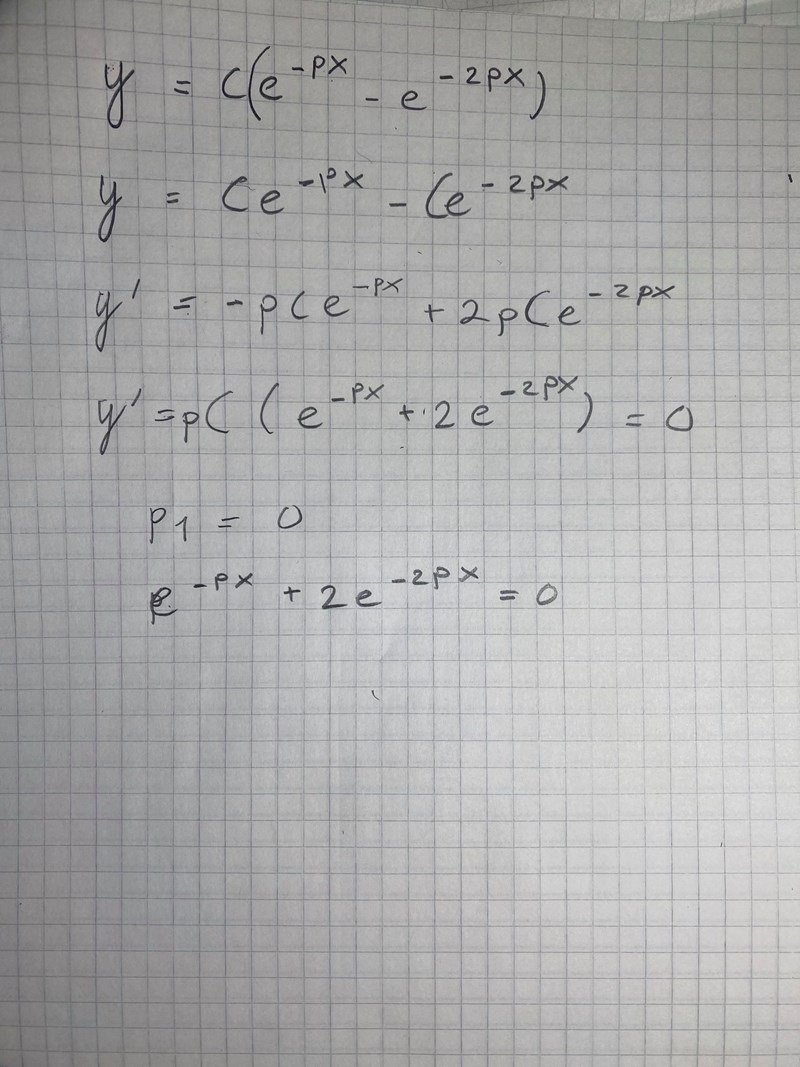 y = C(e^{-px} - e^{-2px})
y = Ce^{-px} - Ce^{-2px}
y' = -pCe^{-px} + 2pCe^{-2px}
y' = pC(e^{-px} + 2e^{-2px}) = 0
p1 = 0
e^{-px} + 2e^{-2px} = 0